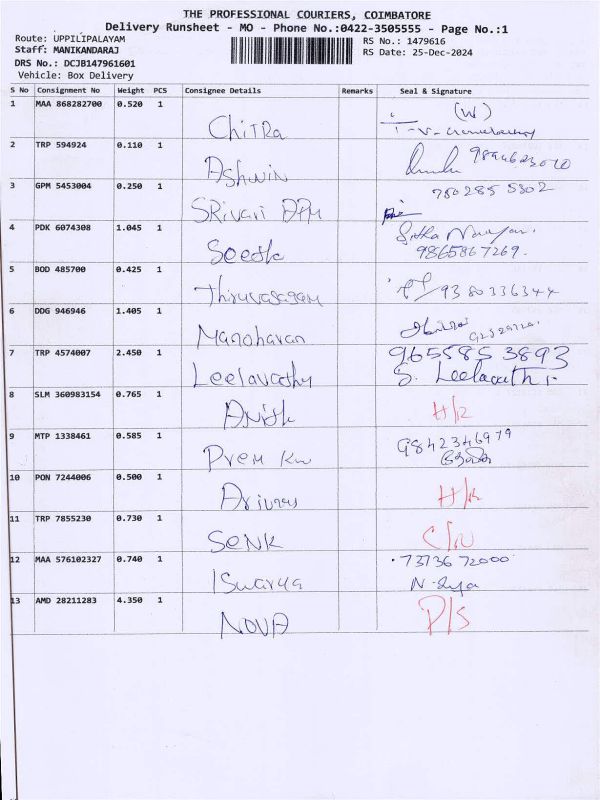 THE PROFESSIONAL COURIERS, COIMBATORE
Delivery Runsheet - MO - Phone No.:0422-3505555 - Page No.:1
Route: UPPILIPALAYAM
RS No.: 1479616
Staff: MANIKANDARAJ
RS Date: 25-Dec-2024
DRS No.: DCJB147961601
Vehicle: Box Delivery
S No Consignment No Weight PCS Consignee Details Remarks Seal & Signature
1 MAA 868282700 0.520 1 ChiTRa (W)
2 TRP 594924 0.110 1 Ashwin
3 GPM 5453004 0.250 1 SRivari 750285 5302
4 PDK 6074308 1.045 1 Seetha
9865867269.
5 BOD 485700 0.425 1 Thiruvasagam 9380336344
6 DDG 946946 1.405 1 Manoharan
7 TRP 4574007 2.450 1 Leelavathy 965585 3893
S. Leelavathi
8 SLM 360983154 0.765 1 H/R
9 MTP 1338461 0.585 1 Prem Kw 9842346979
10 PON 7244006 0.500 1 H/R
11 TRP 7855230 0.730 1 SeNK
12 MAA 576102327 0.740 1 Iswarya 73736 72000
13 AMD 28211283 4.350 1 NOVA P/S